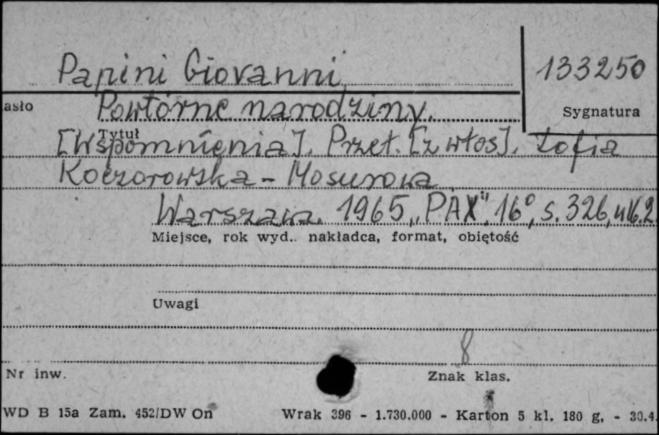 Papini Giovanni
133250
asło
Powtórne narodziny.
Sygnatura
Tytuł
[Wspomnienia]. Przeł. [z włos]. Zofia
Koczorowska-Mosurowa
Warszawa. 1965 „PAX", 16°, s. 326,
Miejsce, rok wyd.. nakładca, format, obiętość
Uwagi
8
Nr inw.
Znak klas.
WD B 15a Zam. 452/DW On
Wrak 396 - 1.730.000 - Karton 5 kl. 180 g, - 30.4.